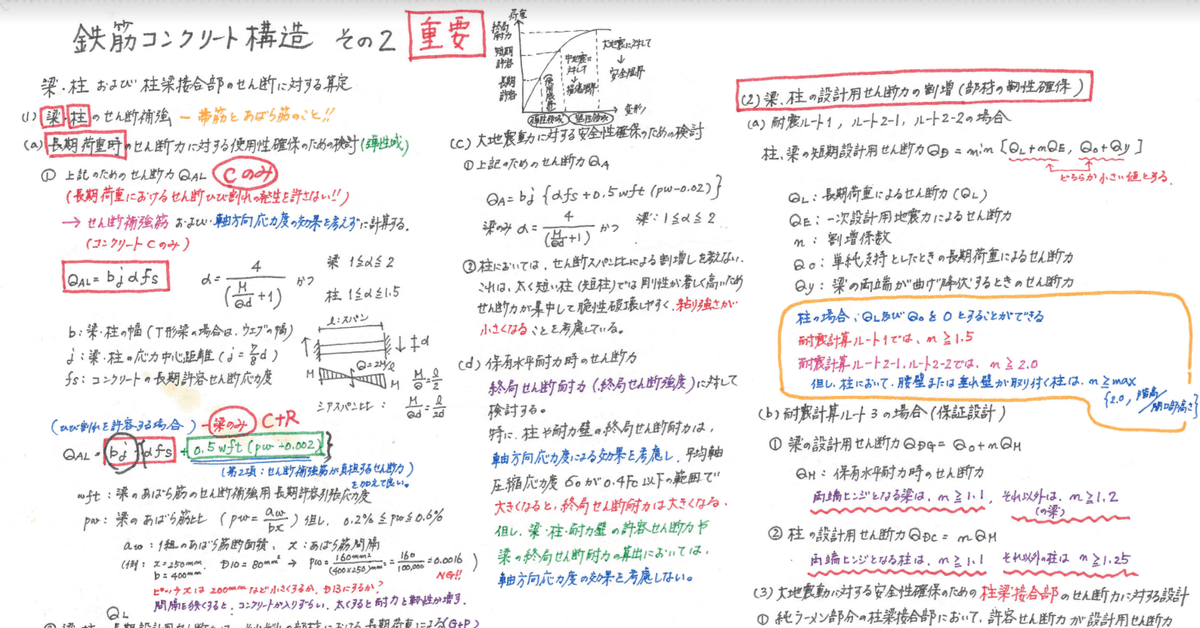 鉄筋コンクリート構造 その2 重要
梁・柱 および 柱梁接合部のせん断に対する算定
(1) 梁・柱のせん断補強 ー 帯筋とあばら筋のこと!!
(a) 長期荷重時のせん断力に対する使用性確保のための検討 (弾性域)
① 上記のためのせん断力 QAL Cのみ
(長期荷重におけるせん断ひび割れの発生を許さない!!)
→ せん断補強筋 および 軸方向応力度の効果を考えずに計算する。
(コンクリートCのみ)
QAL = bjαfs
α = 4/(M/Qd + 1) かつ
梁 1≦α≦2
柱 1≦α≦1.5
b : 梁・柱の幅 (T形梁の場合は、ウェブの幅)
j : 梁・柱の応力中心距離 (j = 7/8 d)
fs : コンクリートの長期許容せん断応力度
l : スパン
d
Q = 2M/l
M
M
M/Q = l/2
シアスパン比 : M/Qd = l/2d
(ひび割れを許容する場合) ー 梁のみ C+R
QAL = bj {αfs + 0.5wft (pw - 0.002)}
(第2項 : せん断補強筋が負担するせん断力)
を加えて良い。
wft : 梁のあばら筋のせん断補強用長期許容引張応力度
pw : 梁のあばら筋比 (pw = aw/bx) 但し、0.2% ≦ pw ≦ 0.6%
aw : 1組のあばら筋断面積、x : あばら筋間隔
(例 : x=250mm. D10=80mm² → pw = 160mm²/(400×250)mm² = 160/100,000 = 0.0016
b=400mm.
NG!!
ピッチxは200mmなど小さくするか、D13にするか?
間隔を狭くすると、コンクリートが入りずらい、太くすると耐力と靭性が増す。
QL
荷重
終局
耐力
短期
許容
長期
許容
使用限界
中地震に
対して
↓
損傷限界
大地震に対して
↓
安全限界
変形
弾性領域
塑性領域
(c) 大地震動に対する安全性確保のための検討
① 上記のためのせん断力 QA
QA = bj {αfs + 0.5wft (pw - 0.02)}
梁のみ α = 4/(M/Qd + 1) かつ 梁 : 1≦α≦2
② 柱においては、せん断スパン比による割増しを考えない。
これは、太く短い柱(短柱)では剛性が著しく高いため
せん断力が集中して脆性破壊しやすく、粘り強さが
小さくなることを考慮している。
(d) 保有水平耐力時のせん断力
終局せん断耐力 (終局せん断強度) に対して
検討する。
特に、柱や耐力壁の終局せん断耐力は、
軸方向応力度による効果を考慮し、平均軸
圧縮応力度 σ0が0.4Fc以下の範囲で
大きくなると、終局せん断耐力は大きくなる。
但し、梁・柱・耐力壁の許容せん断力や
梁の終局せん断耐力の算出においては、
軸方向応力度の効果を考慮しない。
(2) 梁、柱の設計用せん断力の割増 (部材の靭性確保)
(a) 耐震ルート1、ルート2-1、ルート2-2の場合
柱、梁の短期設計用せん断力 QD = min [QL+nQE, Q0+Qy]
どちらか小さい値とする。
QL : 長期荷重によるせん断力 (QL)
QE : 一次設計用地震力によるせん断力
n : 割増係数
Q0 : 単純支持としたときの長期荷重によるせん断力
Qy : 梁の両端が曲げ降伏するときのせん断力
柱の場合、QL及びQ0を0とすることができる
耐震計算ルート1では、n≧1.5
耐震計算ルート2-1、ルート2-2では、n≧2.0
但し、柱において、腰壁または垂れ壁が取り付く柱は、n≧max
{2.0, 階高/開口部高さ}
(b) 耐震計算ルート3の場合 (保証設計)
① 梁の設計用せん断力 QDG = Q0+nQH
QH : 保有水平耐力時のせん断力
両端ヒンジとなる梁は、n≧1.1、それ以外は、n≧1.2
(の梁)
② 柱の設計用せん断力 QDC = nQH
両端ヒンジとなる柱は、n≧1.1 それ以外の柱は n≧1.25
(3) 大地震動に対する安全性確保のための柱梁接合部のせん断力に対する設計
① 純ラーメン部分の柱梁接合部において、許容せん断力が設計用せん断力